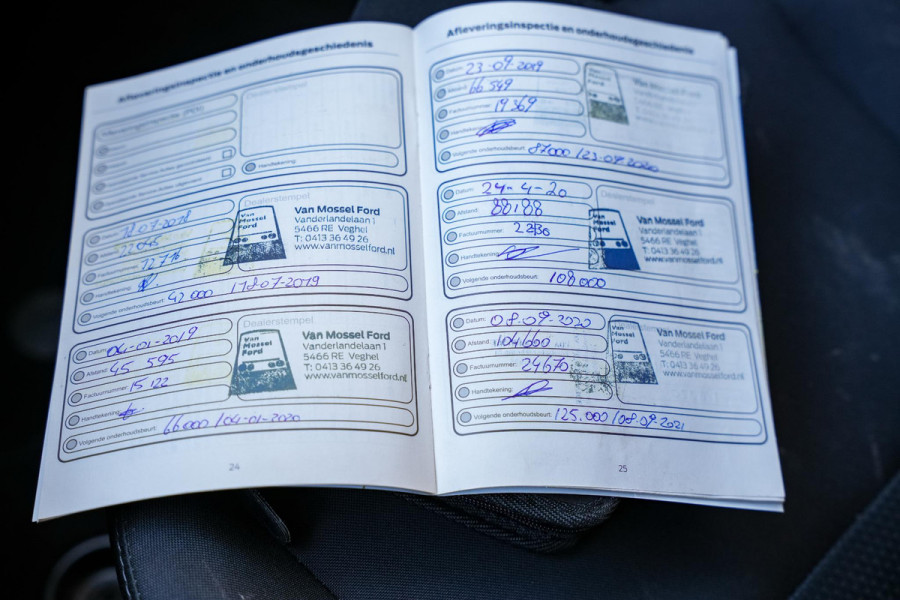 Afleveringsinspectie en onderhoudsgeschiedenis
Handtekening:
Dealerstempel
Van Mossel Ford
Van Mossel Ford
Vanderlandelaan 1
5466 RE Veghel
T: 0413 36 49 26
www.vanmosselford.nl
Handtekening:
Volgende onderhoudsbeurt: 42000 118-07-2019
Dealerstempel
Datum: 04-01-2019
Afstand: 45 595
Factuurnummer: 15 122
Handtekening:
Van Mossel Ford
Van Mossel Ford
Vanderlandelaan 1
5466 RE Veghel
T: 0413 36 49 26
www.vanmosselford.nl
Volgende onderhoudsbeurt: 66000 / 04-01-2020
24
Afleveringsinspectie en onderhoudsgeschiedenis
Datum: 23-09-2019
Afstand: 66 549
Factuurnummer: 19 369
Handtekening:
Volgende onderhoudsbeurt: 87000 / 23-09-2020
Datum: 24-4-20
Afstand: 88188
Factuurnummer: 2230
Handtekening:
Van Mossel Ford
Vanderlandelaan 1
5466 RE Veghel
T: 0413 36 49 26
www.vanmosselford.nl
Volgende onderhoudsbeurt: 108.000
Datum: 08-09-2020
Afstand: 104660
Factuurnummer: 24670
Handtekening:
Van Mossel Ford
Van Mossel Ford
Vanderlandelaan 1
5466 RE Veghel
T: 0413 36 49 26
www.vanmosselford.nl
Volgende onderhoudsbeurt: 125.000 / 08-09-2021
25